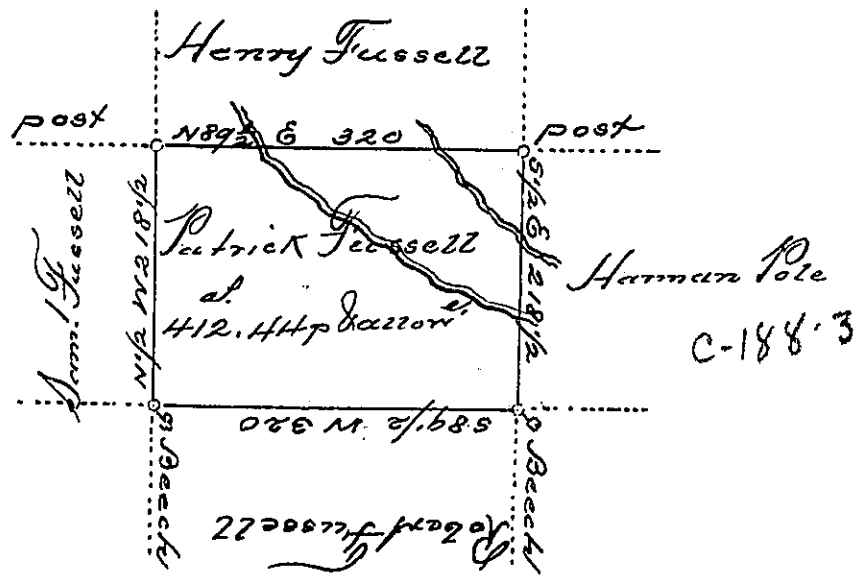 Henry Fussell
post
N89½ E 320
post
Sam.l Fussell
N½ W 218½
Patrick Fussell
a.
412.44p & allow.e
S½ E 218½
Harman Pole
C-188-3
S89½ W 320
Beech
Beech
Robert Fussell